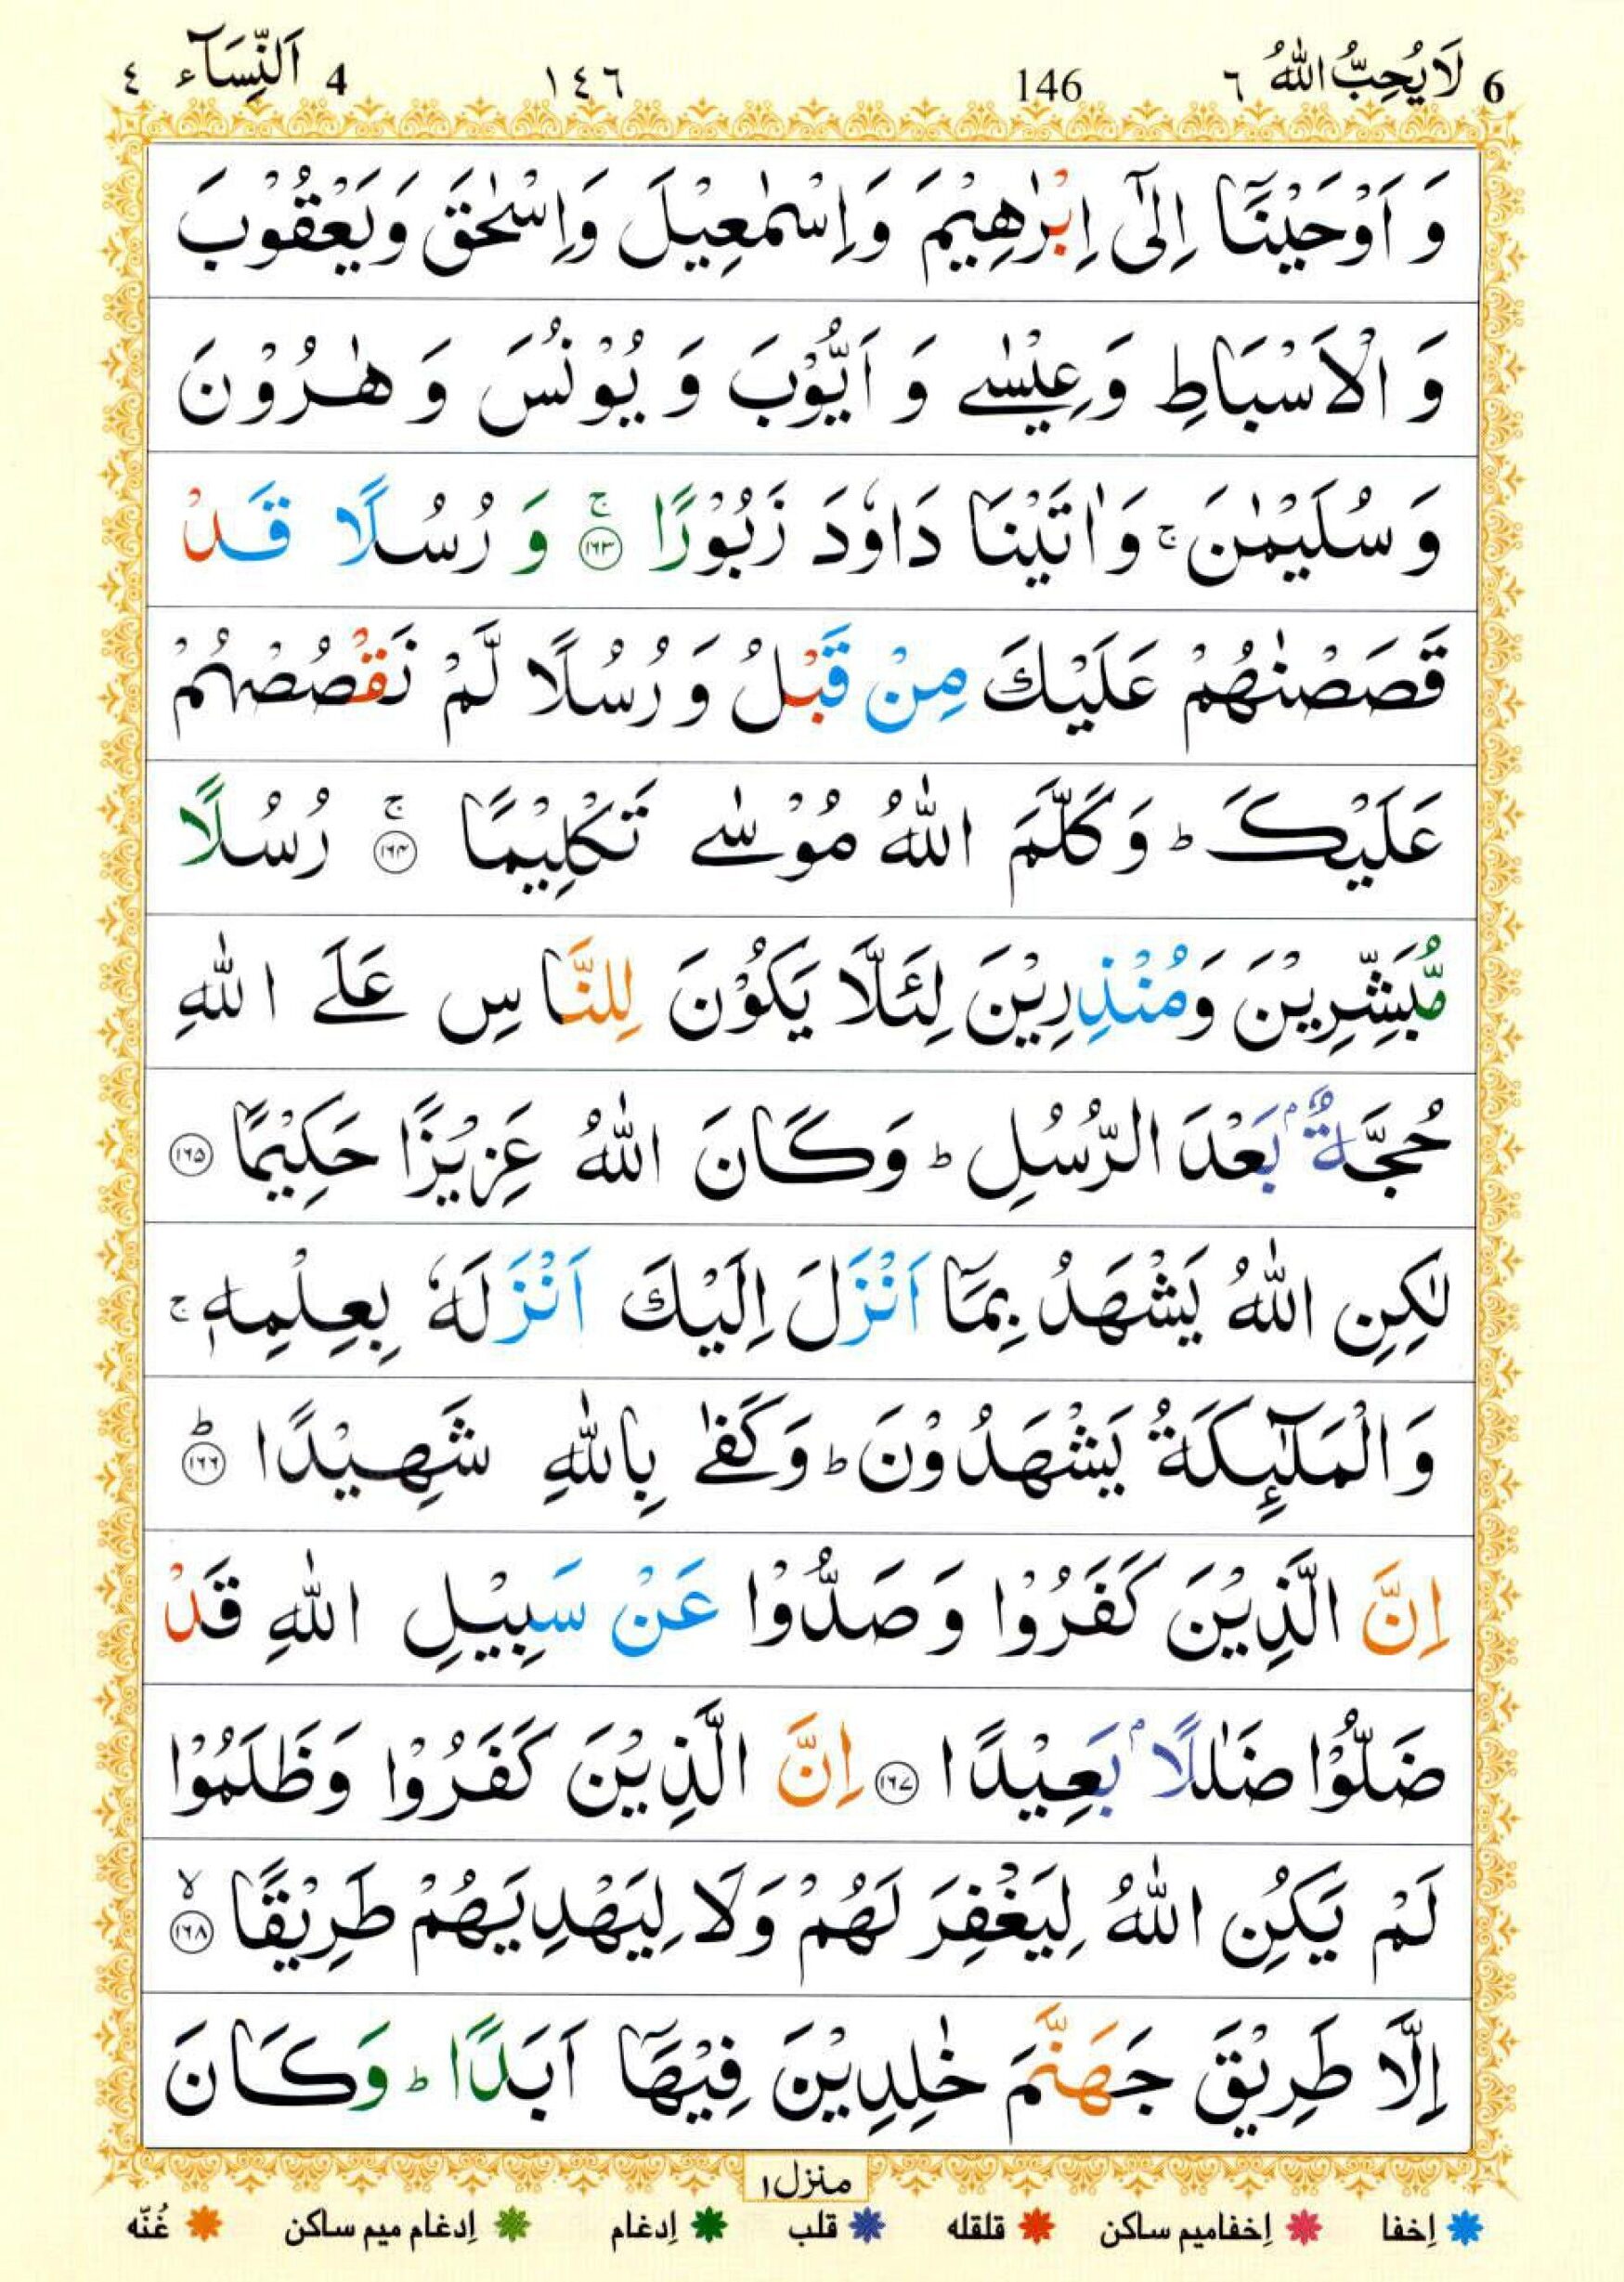 6 لَا یُحِبُّ اللّٰهُ ٦ 146 ١٤٦ 4 اَلنِّسَآء ٤
وَ اَوْحَیْنَاۤ اِلٰۤی اِبْرٰهِیْمَ وَ اِسْمٰعِیْلَ وَ اِسْحٰقَ وَ یَعْقُوْبَ
وَ الْاَسْبَاطِ وَ عِیْسٰی وَ اَیُّوْبَ وَ یُوْنُسَ وَ هٰرُوْنَ
وَ سُلَیْمٰنَ ۚ وَ اٰتَیْنَا دَاوٗدَ زَبُوْرًا ۚ۝۱۶۳ وَ رُسُلًا قَدْ
قَصَصْنٰهُمْ عَلَیْكَ مِنْ قَبْلُ وَ رُسُلًا لَّمْ نَقْصُصْهُمْ
عَلَیْكَ ؕ وَ كَلَّمَ اللّٰهُ مُوْسٰی تَكْلِیْمًا ۚ۝۱۶۴ رُسُلًا
مُّبَشِّرِیْنَ وَ مُنْذِرِیْنَ لِئَلَّا یَكُوْنَ لِلنَّاسِ عَلَی اللّٰهِ
حُجَّةٌۢ بَعْدَ الرُّسُلِ ؕ وَ كَانَ اللّٰهُ عَزِیْزًا حَكِیْمًا ۝۱۶۵
لٰكِنِ اللّٰهُ یَشْهَدُ بِمَاۤ اَنْزَلَ اِلَیْكَ اَنْزَلَهٗ بِعِلْمِهٖ ۚ
وَ الْمَلٰٓىِٕكَةُ یَشْهَدُوْنَ ؕ وَ كَفٰی بِاللّٰهِ شَهِیْدًا ؕ۝۱۶۶
اِنَّ الَّذِیْنَ كَفَرُوْا وَ صَدُّوْا عَنْ سَبِیْلِ اللّٰهِ قَدْ
ضَلُّوْا ضَلٰلًۢا بَعِیْدًا ۝۱۶۷ اِنَّ الَّذِیْنَ كَفَرُوْا وَ ظَلَمُوْا
لَمْ یَكُنِ اللّٰهُ لِیَغْفِرَ لَهُمْ وَ لَا لِیَهْدِیَهُمْ طَرِیْقًا ۙ۝۱۶۸
اِلَّا طَرِیْقَ جَهَنَّمَ خٰلِدِیْنَ فِیْهَاۤ اَبَدًا ؕ وَ كَانَ
منزل ۱
اِخفا اِخفامیم ساکن قلقله قلب اِدغام اِدغام میم ساکن غُنّه